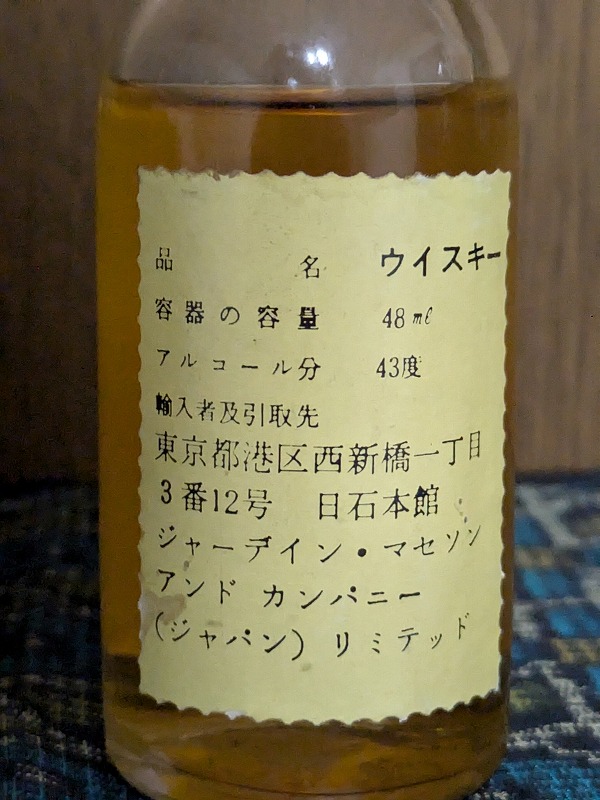 品名 ウイスキー
容器の容量 48㎖
アルコール分 43度
輸入者及引取先
東京都港区西新橋一丁目
3番12号 日石本館
ジャーデイン・マセソン
アンド カンパニー
(ジャパン) リミテッド